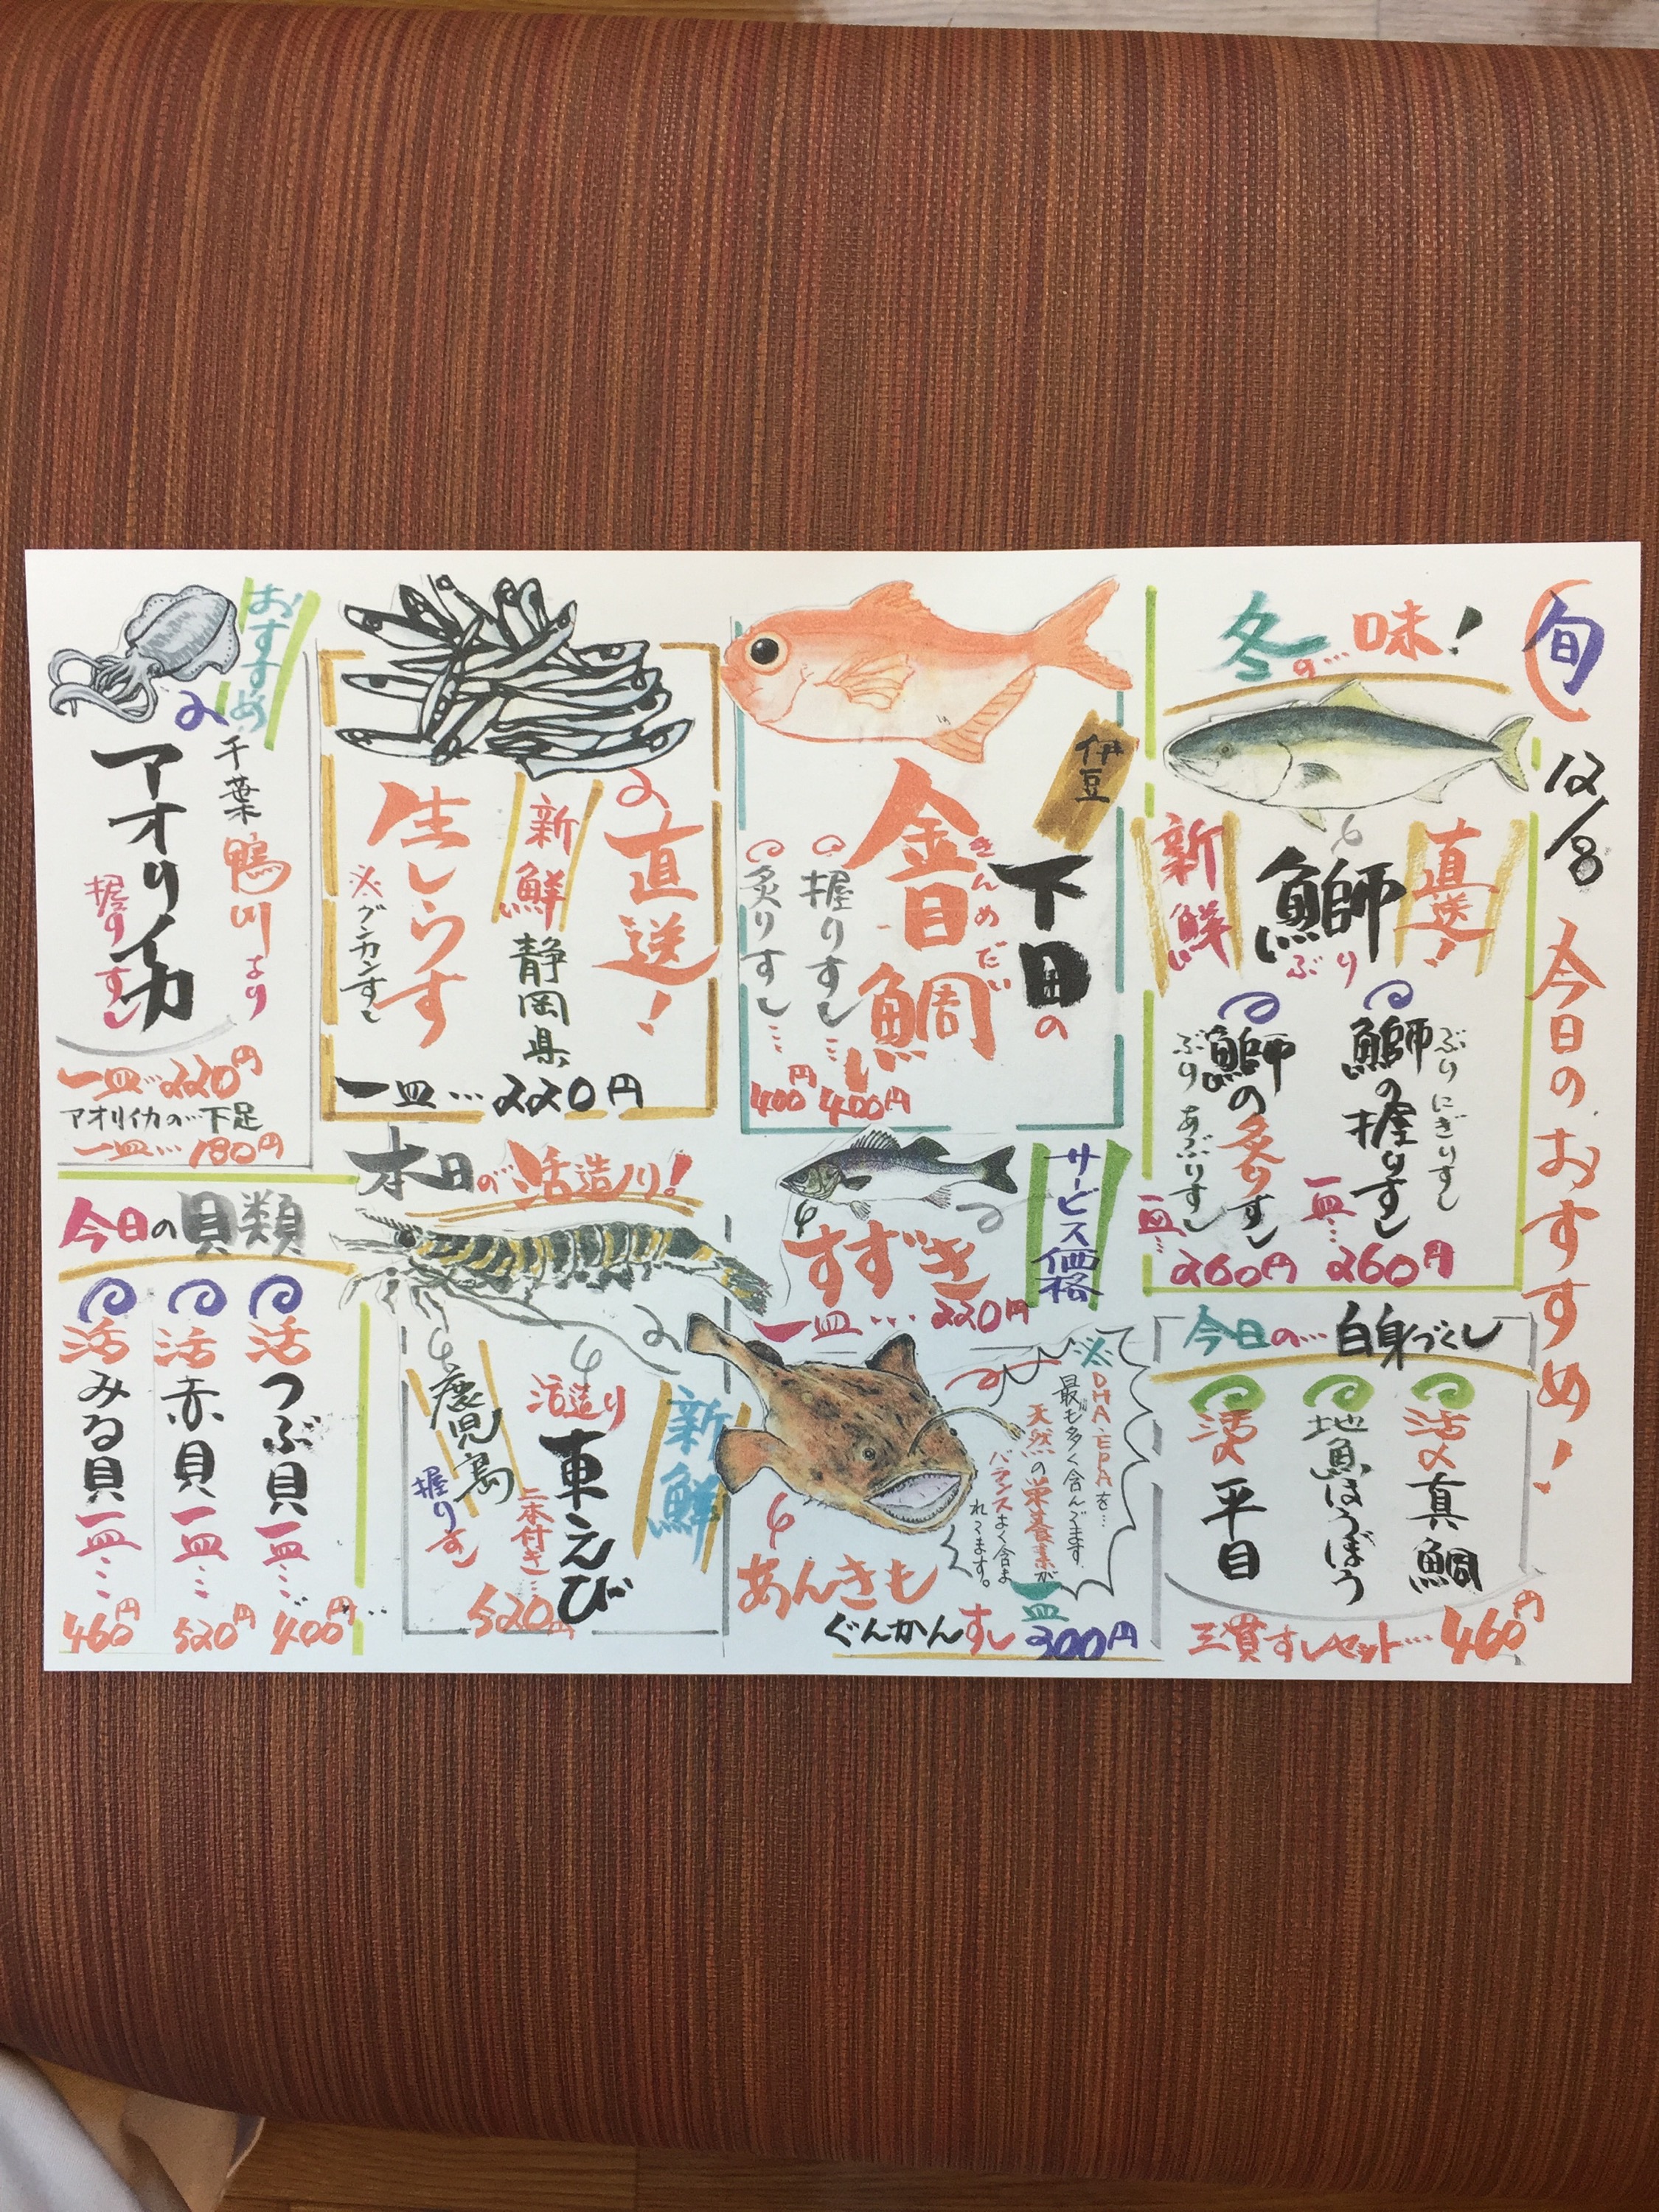 旬
12/8
今日のおすすめ!
冬の…味!
直送!
鰤
ぶり
新鮮
ぶりにぎりすし
鰤の握りすし
一皿…
260円
ぶりあぶりすし
鰤の炙りすし
一皿…
260円
今日の…白身づくし
活〆真鯛
地魚ほうぼう
活〆平目
三貫すしセット…460円
伊豆
下田の
きんめだい
金目鯛
握りすし…
400円
炙りすし…
400円
サービス価格
すずき
一皿…220円
※DHA、EPAを…
最も多く含んでます
天然の栄養素が
バランスよく含ま
れてます。
あんきも
ぐんかんすし
一皿
300円
直送!
新鮮
静岡県
生しらす
※グンカンすし
一皿…220円
本日の活造り!
新鮮
活造り
車えび
二本付き…
520円
鹿児島
握りすし
おすすめ
千葉
鴨川より
アオリイカ
握りすし
一皿…220円
アオリイカの下足
一皿…180円
今日の貝類
活つぶ貝
一皿…
400円
活赤貝
一皿…
520円
活みる貝
一皿…
460円